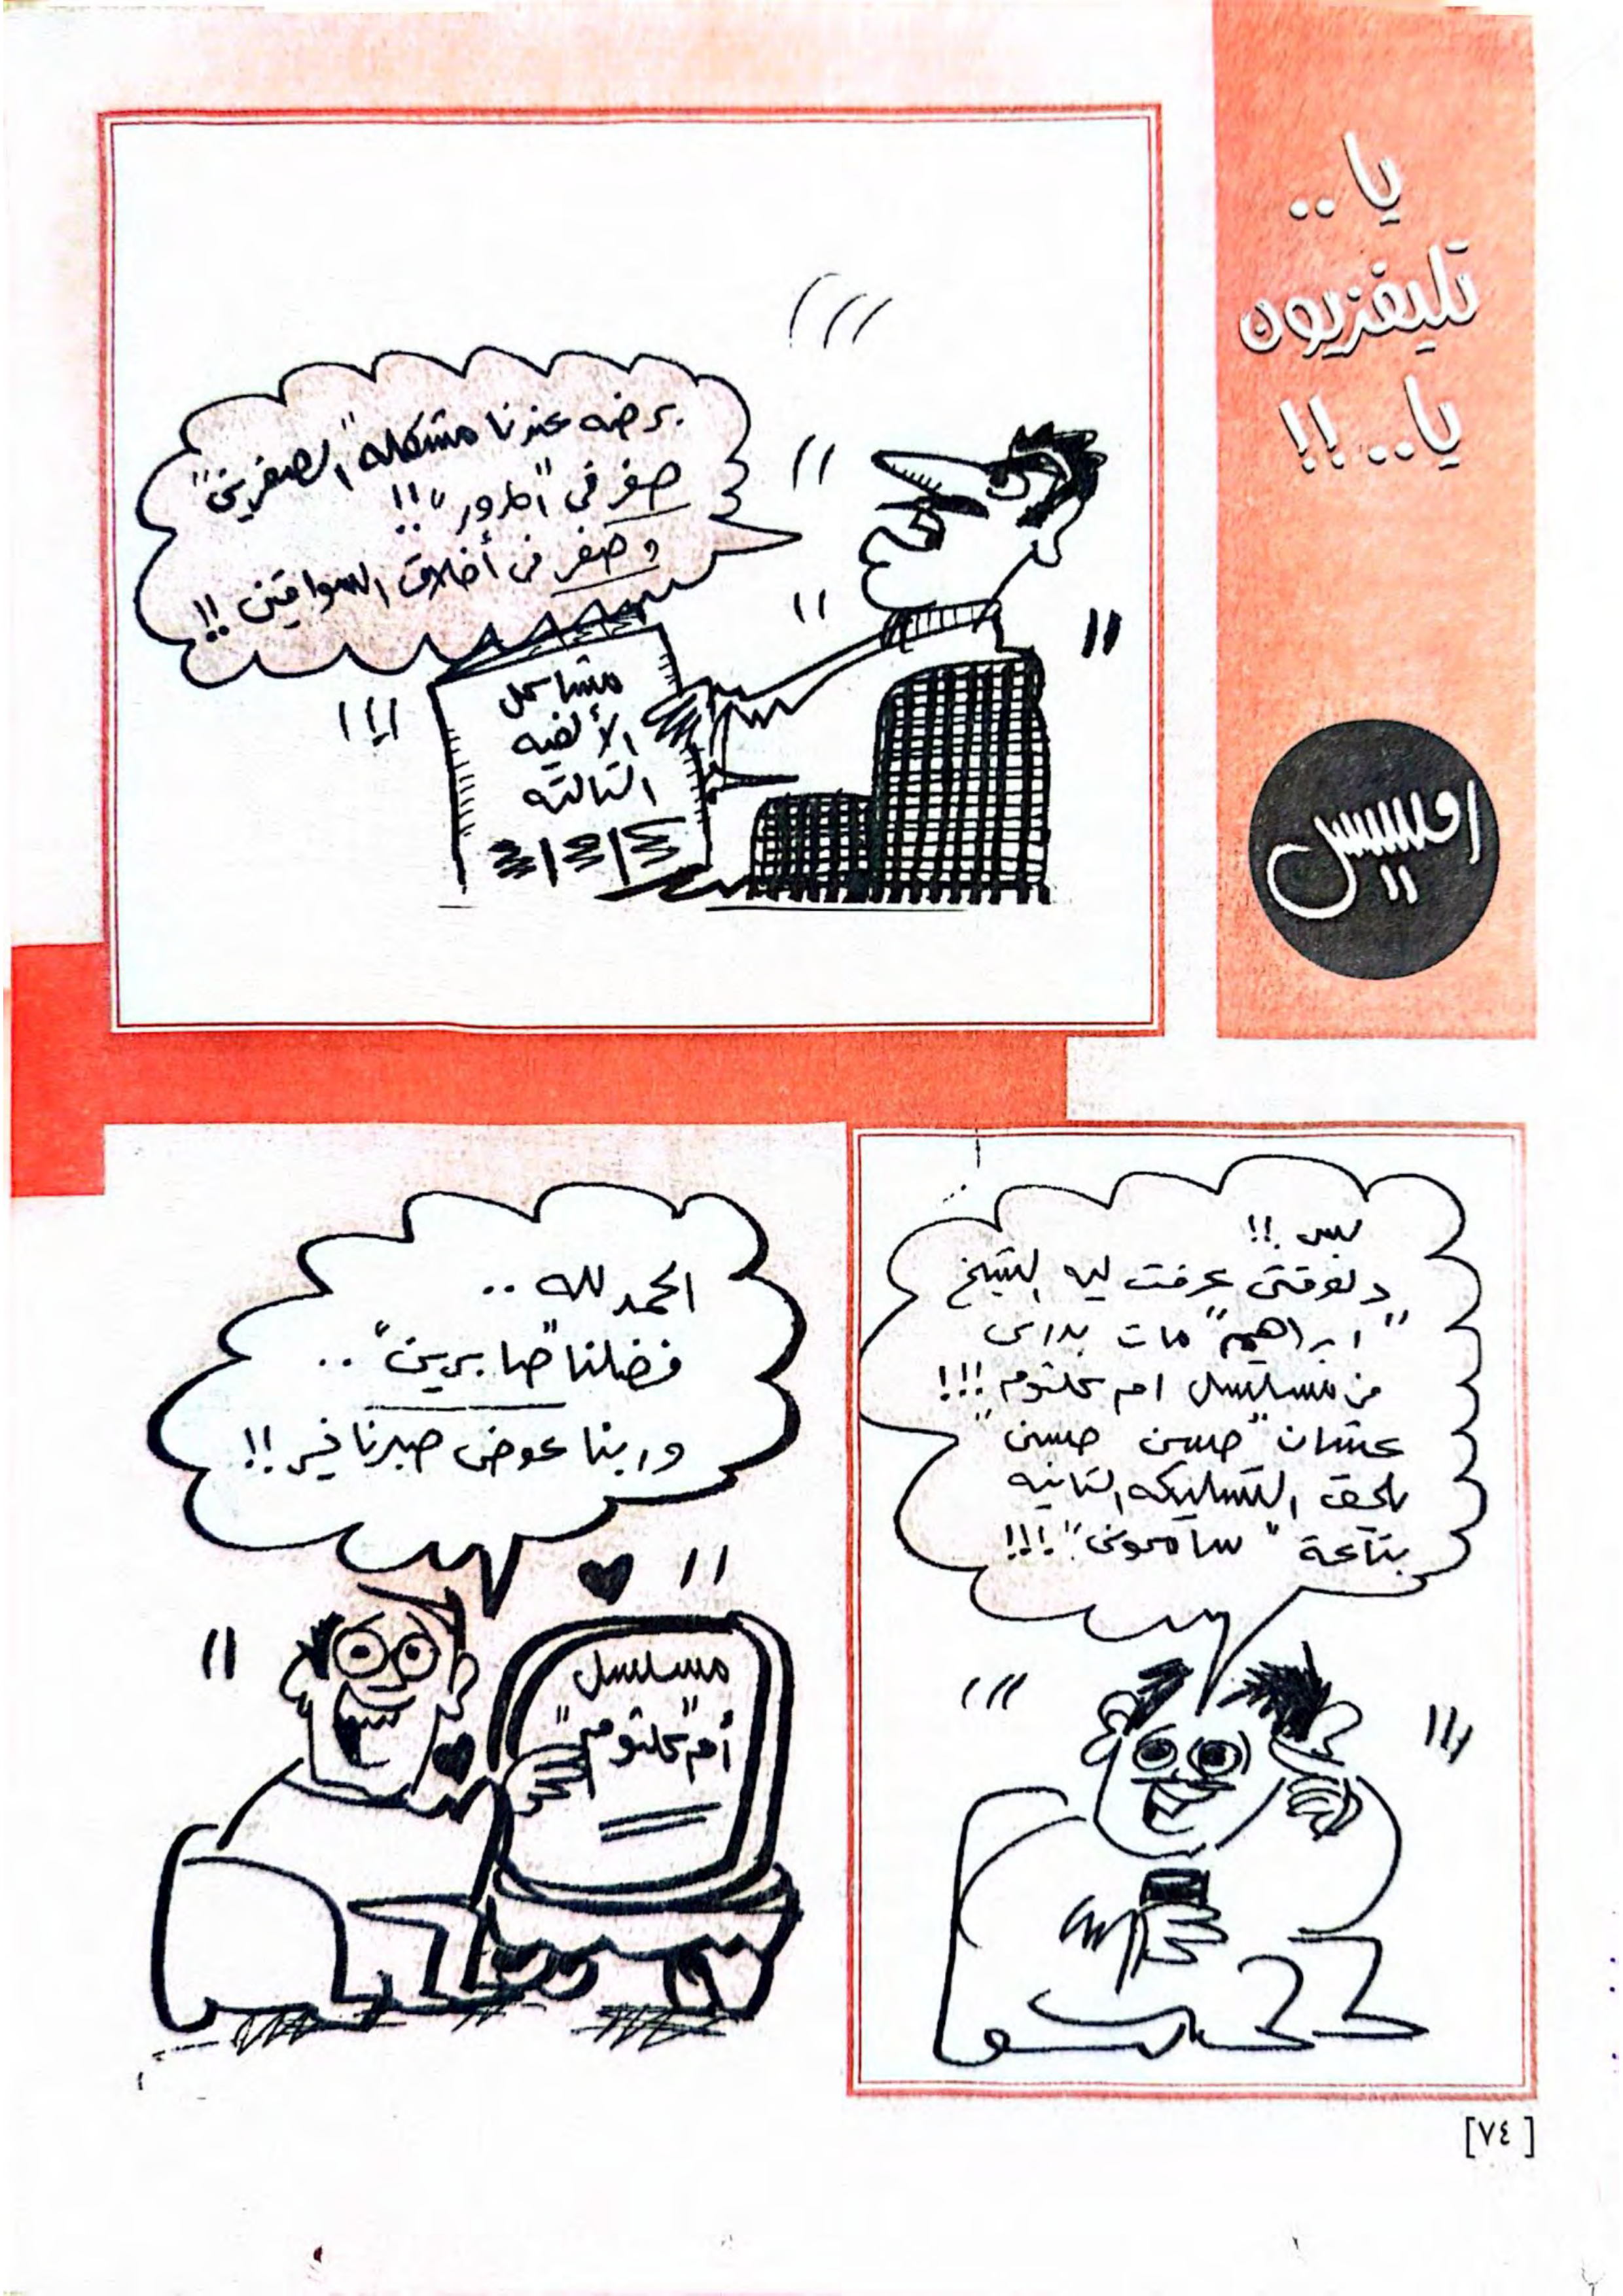 يا..
تليفزيون
يا..!!
رمسيس
برضه عندنا مشكله "الصفرين"
صفر فى "المرور"!!
وصفر فى أخلاق السواقين!!
مشاكل
الألفيه
التالته
بس!!
دلوقتى عرفت ليه الشيخ
"ابراهيم" مات بدرى
فى مسلسل ام كلثوم!!!
عشان "حسن حسنى"
يلحق التسليكه التانيه
بتاعة "سامحونى"!!!
الحمد لله..
فضلنا "صابرين"..
وربنا عوض صبرنا خير!!
مسلسل
"أم كلثوم"
[٧٤]